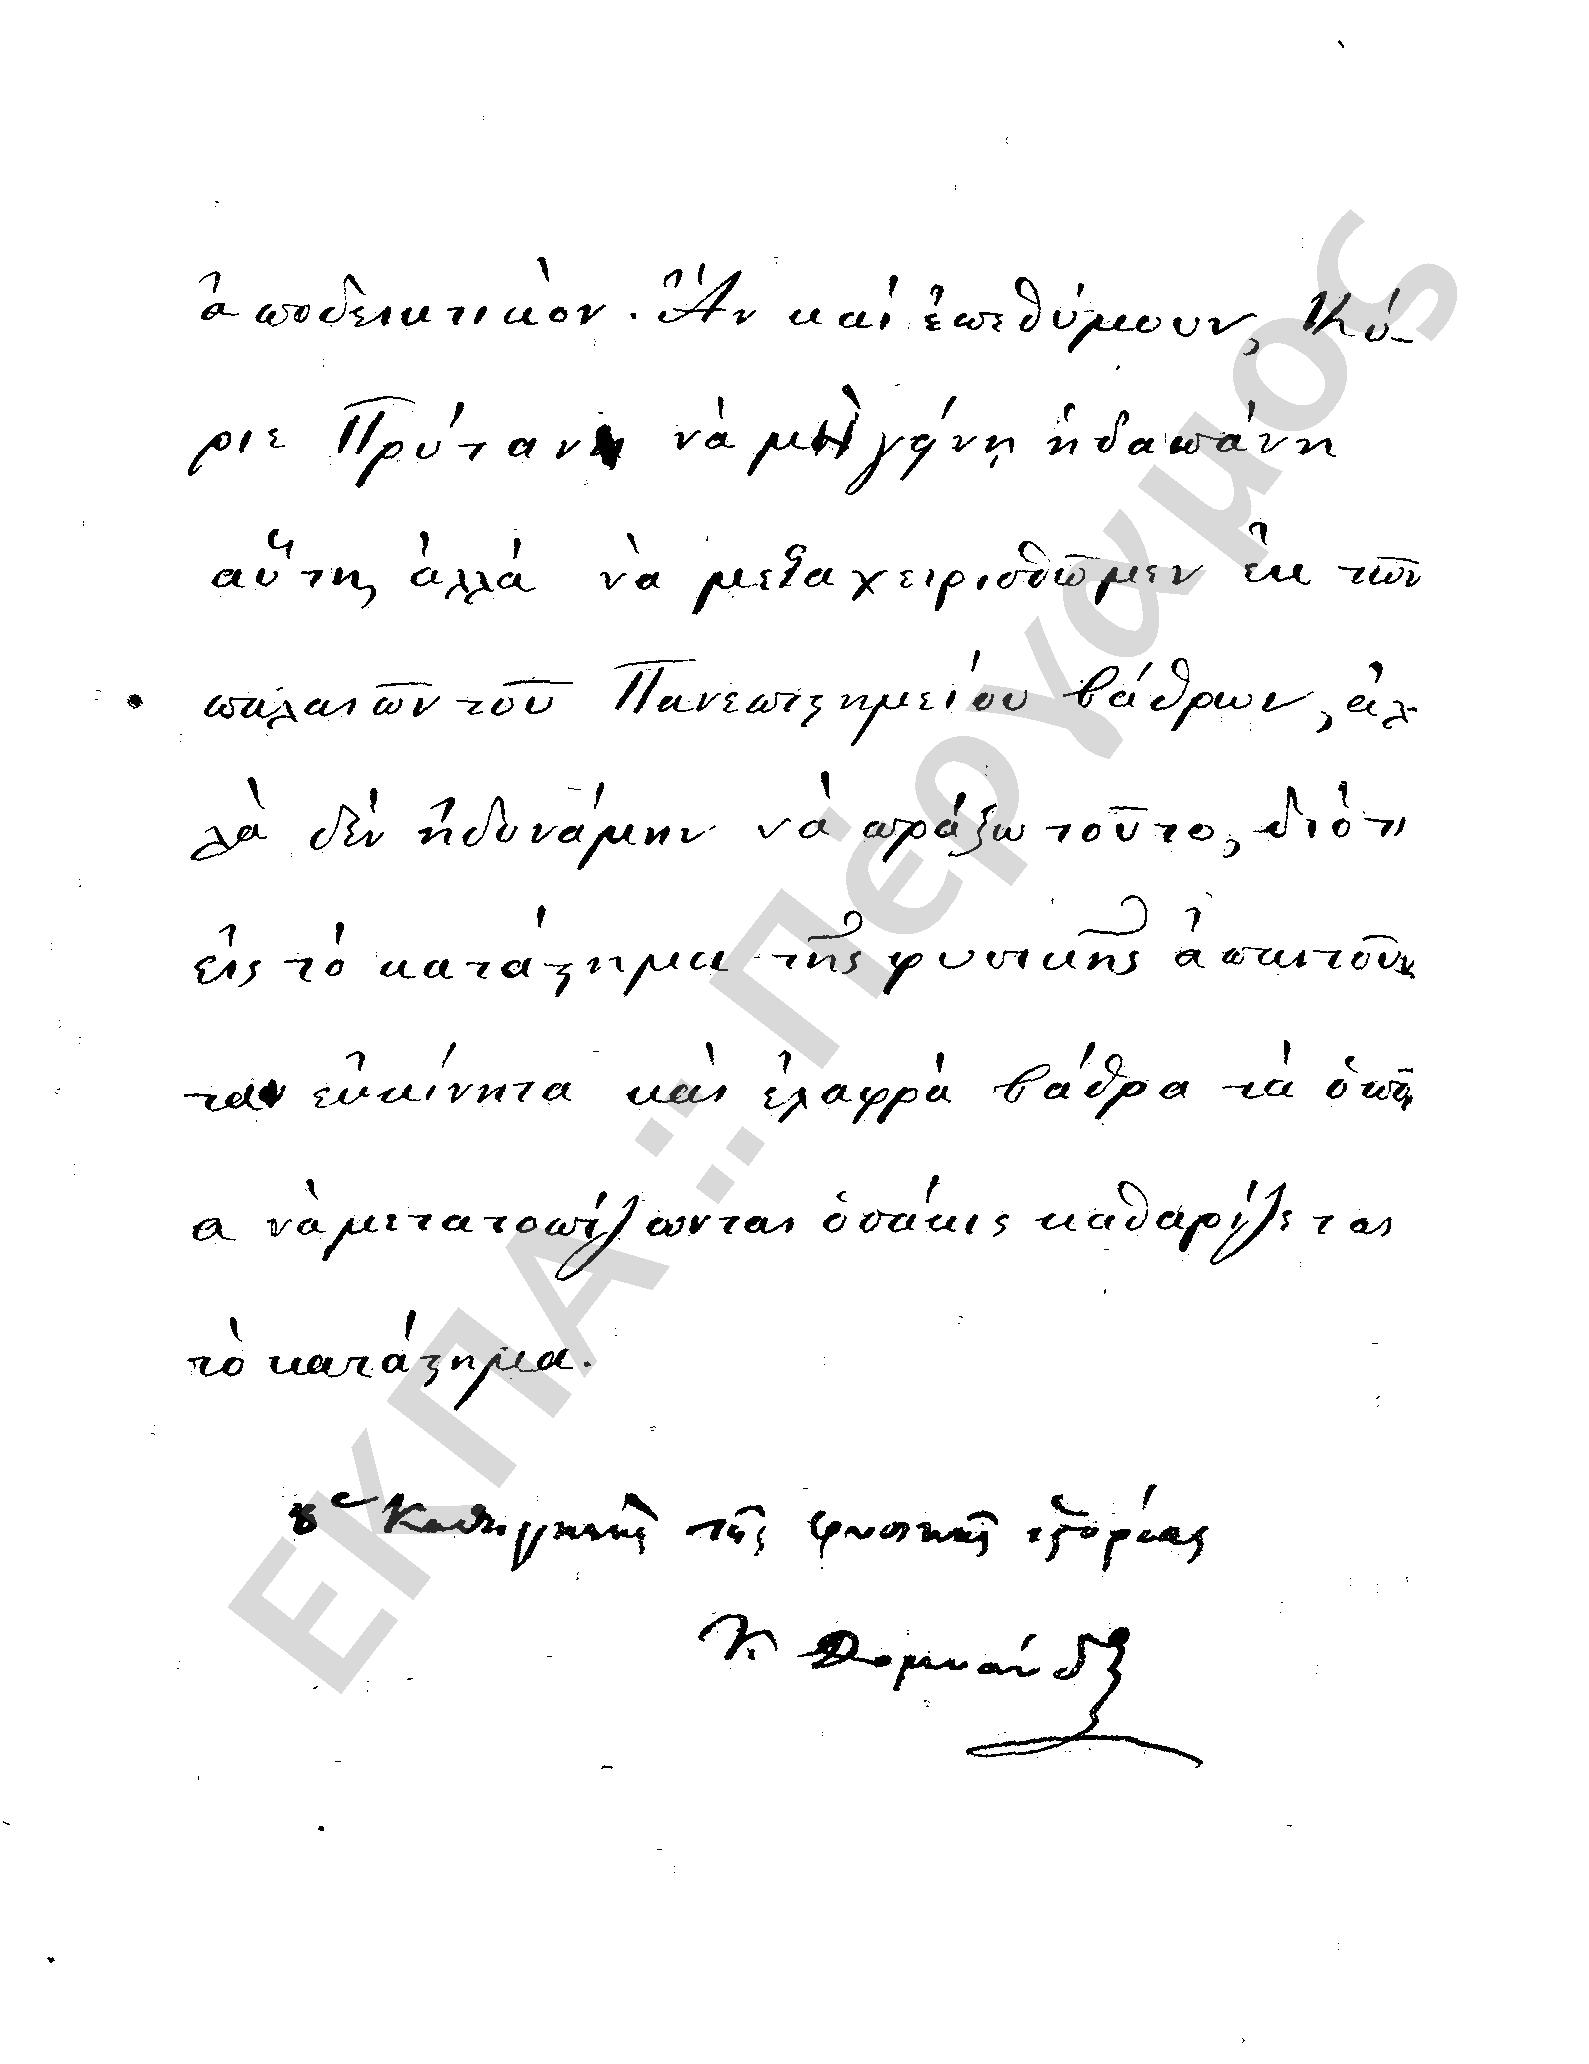 ἀποδεικτικὸν. Ἄν καὶ ἐπεθύμουν, Κύ-
ριε Πρύτανι νὰ μὴ γίνῃ ἡ δαπάνη
αὕτη, ἀλλὰ νὰ μεταχειρισθῶμεν ἐκ τῶν
παλαιῶν τοῦ Πανεπιϛημείου βάθρων, ἀλ-
λὰ δὲν ἠδυνάμην νὰ πράξω τοῦτο, διότι
εἰς τὸ κατάϛημα τῆς φυσικῆς ἀπαιτοῦν
ται εὐκίνητα καὶ ἐλαφρὰ βάθρα τὰ ὁποῖ
α νὰ μετατοπίζωνται ὁσάκις καθαρίζεται
τὸ κατάϛημα.
ὁ Καθηγητὴς τῆς φυσικῆς ἱϛορίας
Κ. Δομνάνδος
ΕΚΠΑ :: Πέργαμος